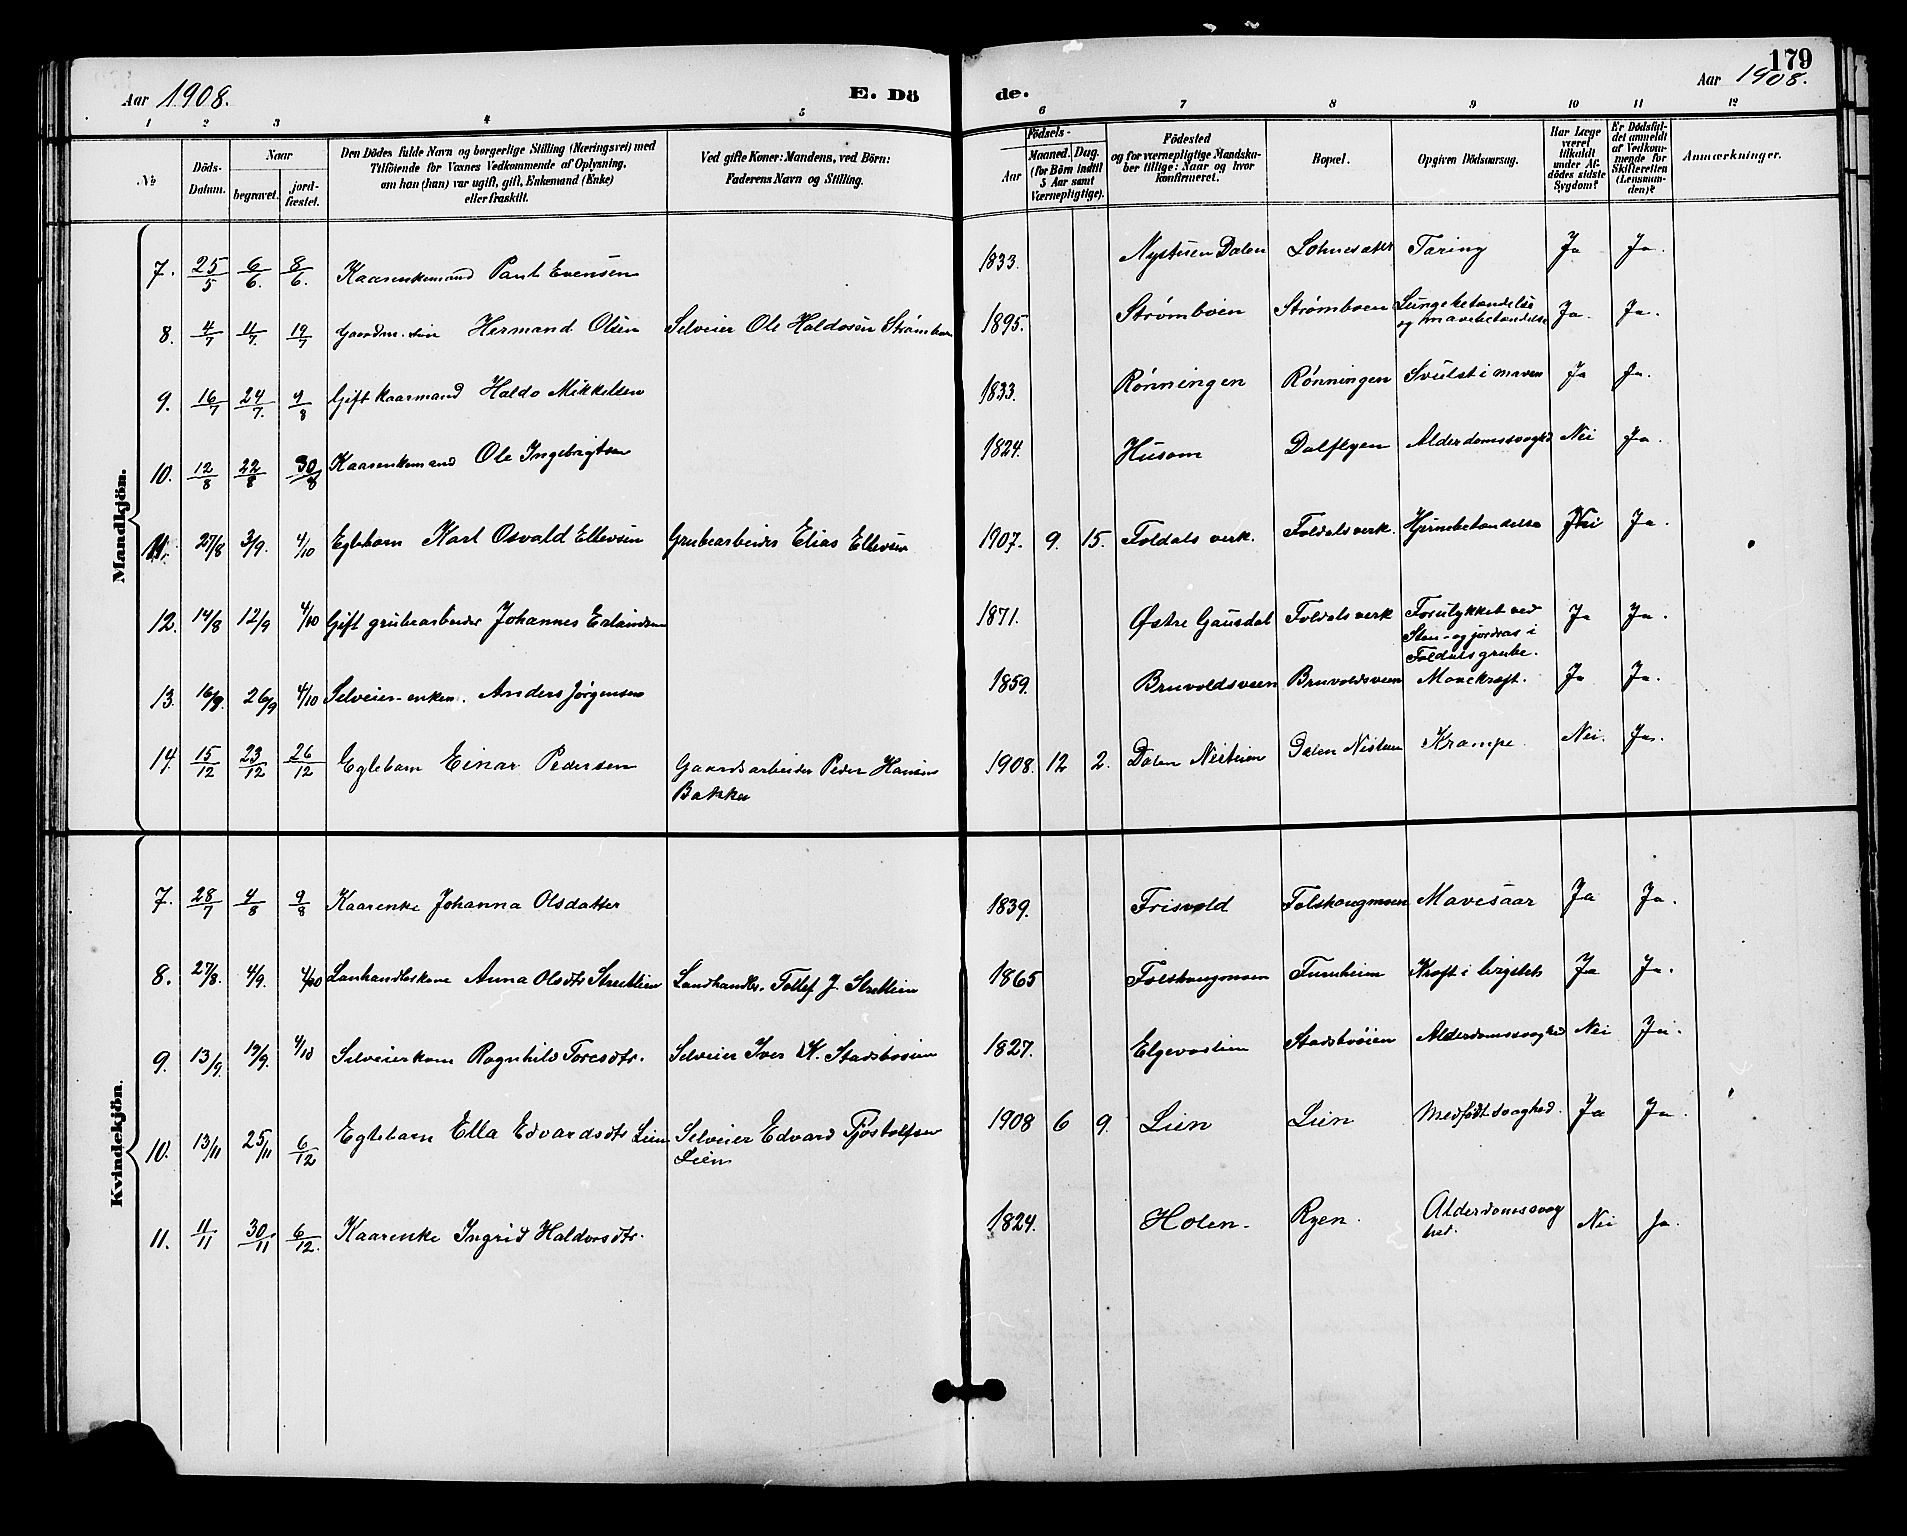 179
Aar 1908. E. Dö de. Aar 1908.
1 2 3 4 5 6 7 8 9 10 11 12
№ Döds-Datum. Naar begravet. jord-fæstet. Den Dödes fulde Navn og borgerlige Stilling (Næringsvei) med Tilföiende for Voxnes Vedkommende af Oplysning, om han (hun) var ugift, gift, Enkemand (Enke) eller fraskilt. Ved gifte Koner: Mandens, ved Börn: Faderens Navn og Stilling. Födsels- Aar Maaned. Dag. (for Börn indtil 5 Aar samt Værnepligtige). Födested og for værnepligtige Mandska-ber tillige: Naar og hvor konfirmeret. Bopæl. Opgiven Dödsaarsag. Har Læge været tilkaldt under Af-dödes sidste Sygdom? Er Dödsfal-det anmeldt af Vedkom-mende for Skifteretten (Lensman-den)? Anmærkninger.
Mandkjön.
7. 25/5 6/6. 8/6. Kaarenkemand Paul Evensen 1833. Nystuen Dalen Tæring Ja Ja.
8. 4/7 11/7. 19/7 Gaardm. søn Hermand Olsen Selveier Ole Haldosen Strømboen 1895. Strømboen Strømboen Lungebetændelse Ja. Ja.
og mavebetændelse
9. 16/7 24/7. 9/8 Gift kaarmand Haldo Mikkelsen 1833. Rønningen Rønningen Svulst i maven Ja Ja.
10. 12/8 22/8 30/8 Kaarenkemand Ole Ingebrigtsen 1824. Husom Dalflyen Alderdomssvaghd Nei Ja.
11. 27/8 3/9. 4/10 Egtebarn Karl Osvald Ellevsen Grubearbeider Elias Ellevsen 1907. 9. 15. Foldals verk. Foldals verk. Hjernebetændelse Nei Ja.
12. 14/8 12/9 4/10 Gift grubearbeider Johannes Erlandsen 1871. Østre Gausdal Foldals verk Forulykket ved Ja Ja.
Sten- og jordras i
Foldals grube.
13. 16/9. 26/9 4/10 Selveier-enkem. Anders Jørgensen 1859. Bruvoldsveen Bruvoldsveen Mavekræft. Ja Ja.
14. 15/12 23/12 26/12 Egtebarn Einar Pedersen Gaardsarbeider Peder Hansen 1908. 12 2. Dalen Nistuen Dalen Nistuen Krampe. Nei. Ja.
Bakken
Kvindekjön.
7. 28/7 4/8 9/8 Kaarenke Johanna Olsdatter 1839. Frisvold Folshaugmoen Mavesaar Ja Ja.
8. 27/8. 4/9. 4/10 Lanhandleskone Anna Olsdtr Streitlien Landhandler. Tollef J. Streitlien 1865 Folshaugmoen Furuheim Kræft i brystet Ja Ja.
9. 13/9. 19/9. 4/10 Selveierkone Ragnhild Toresdtr. Selveier Iver K. Stadsbuøien 1827. Elgevaslien Stadsbuøien Alderdomssvaghed Nei Ja.
10. 13/11 25/11 6/12 Egtebarn Ella Edvardsdtr Lien Selveier Edvard Tjøstolfsen 1908 6 9. Lien Lien Medfødt svaghed. Ja Ja.
Lien
11. 11/11 30/11 6/12. Kaarenke Ingrid Haldorsdtr. 1824. Holen. Ryen. Alderdomssvag Nei Ja.
hed.